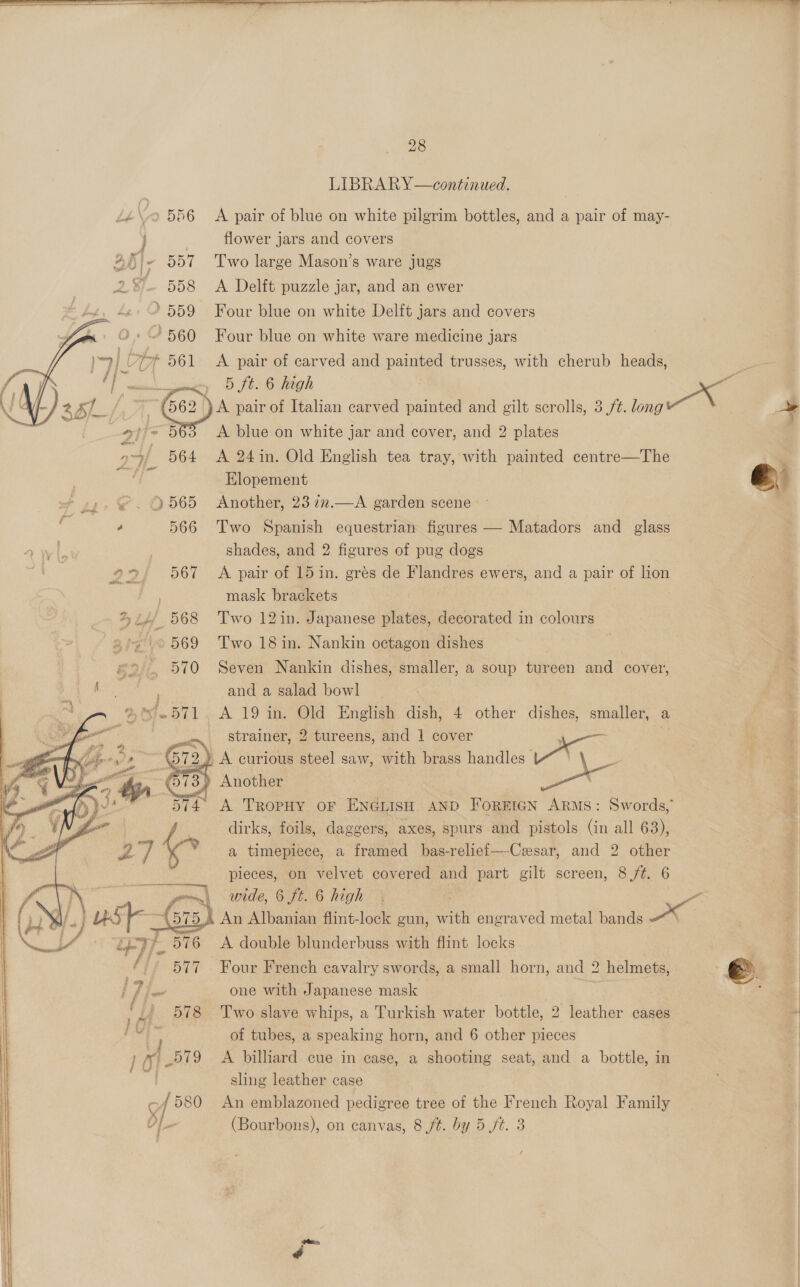 28
LIBRARY—continued.
556 A pair of blue on white pilgrim bottles, and a pair of may-
flower jars and covers
557 Two large Mason's ware jugs
558 A Delft puzzle jar, and an ewer
559 Four blue on white Delft jars and covers
560 Four blue on white ware medicine jars
561 A pair of carved and painted trusses, with cherub heads,
5 ft. 6 high
562 A pair of Italian carved painted and gilt scrolls, 3 ft. long
563 A blue on white jar and cover, and 2 plates
564 A 24 in. Old English tea tray, with painted centre—The
Elopement
565 Another, 23 in.—A garden scene
566 Two Spanish equestrian figures — Matadors and glass
shades, and 2 figures of pug dogs
567 A pair of 15 in. grès de Flandres ewers, and a pair of lion
mask brackets
568 Two 12 in. Japanese plates, decorated in colours
569 Two 18 in. Nankin octagon dishes
570 Seven Nankin dishes, smaller, a soup tureen and cover,
and a salad bowl
571 A 19 in. Old English dish, 4 other dishes, smaller, a
strainer, 2 tureens, and 1 cover
572 A curious steel saw, with brass handles
573 Another
574 A TROPHY OF ENGLISH AND FOREIGN ARMS: Swords,
dirks, foils, daggers, axes, spurs and pistols (in all 63),
a timepiece, a framed bas-relief—Cæsar, and 2 other
pieces, on velvet covered and part gilt screen, 8 ft. 6
wide, 6 ft. 6 high
575 An Albanian flint-lock gun, with engraved metal bands
576 A double blunderbuss with flint locks
577 Four French cavalry swords, a small horn, and 2 helmets,
one with Japanese mask
578 Two slave whips, a Turkish water bottle, 2 leather cases
of tubes, a speaking horn, and 6 other pieces
579 A billiard cue in case, a shooting seat, and a bottle, in
sling leather case
580 An emblazoned pedigree tree of the French Royal Family
(Bourbons), on canvas, 8 ft. by 5 ft. 3